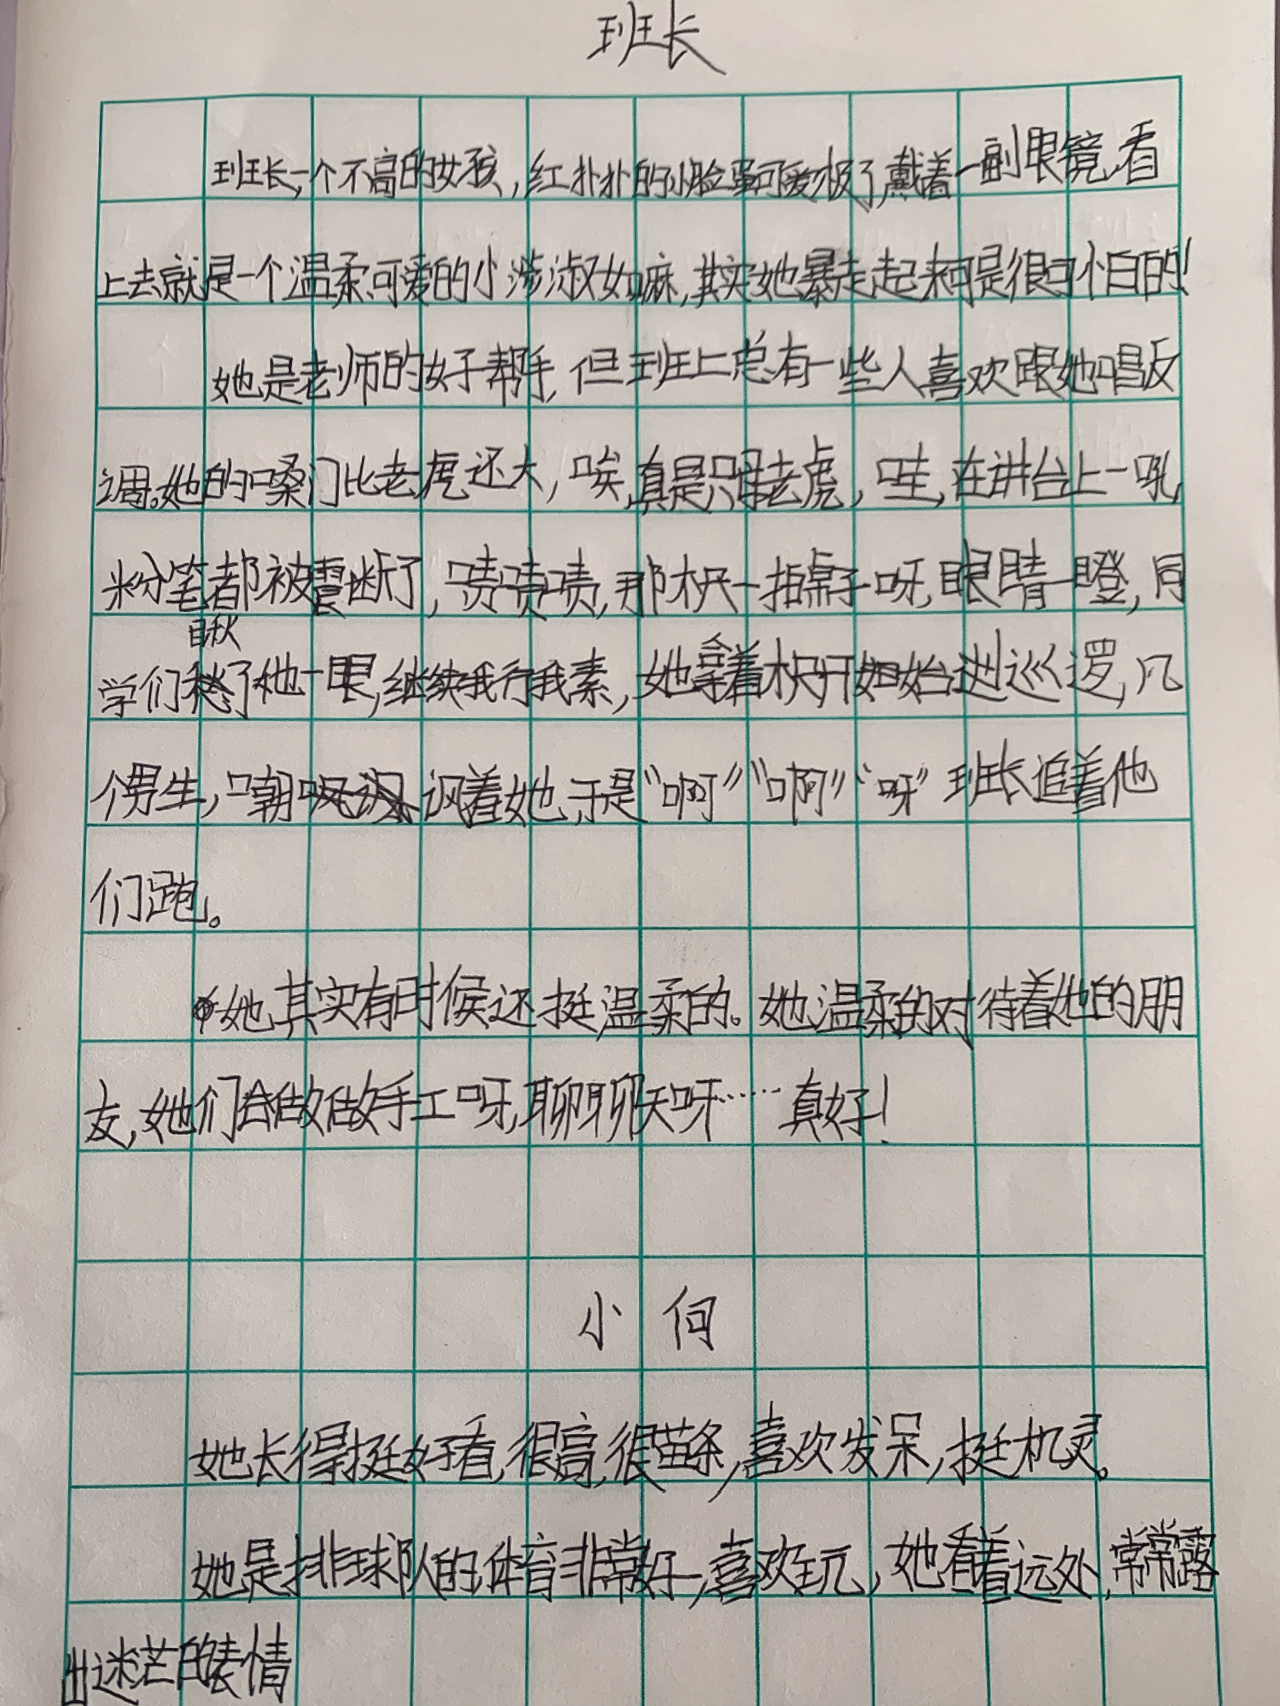 班长
班长,一个不高的女孩,红扑扑的小脸蛋可爱极了,戴着一副眼镜,看
上去就是一个温柔可爱的小淑女嘛,其实她暴走起来可是很可怕的!
她是老师的好帮手,但班上总有一些人喜欢跟她唱反
调。她的嗓门比老虎还大,唉,真是只母老虎,哇,在讲台上一吼,
粉笔都被震断了,啧啧啧,那木尺一拍桌子呀,眼睛一瞪,同
学们瞅了她一眼,继续我行我素,她拿着木尺开始巡逻,几
个男生,嘲讽着她,于是“啊”“啊”“呀”班长追着他
们跑。
她其实有时候还挺温柔的。她温柔的对待着她的朋
友,她们会做做手工呀,聊聊天呀……真好!
小何
她长得挺好看,很高,很苗条,喜欢发呆,挺机灵。
她是排球队的,体育非常好,喜欢玩,她看着远处,常常露
出迷茫的表情